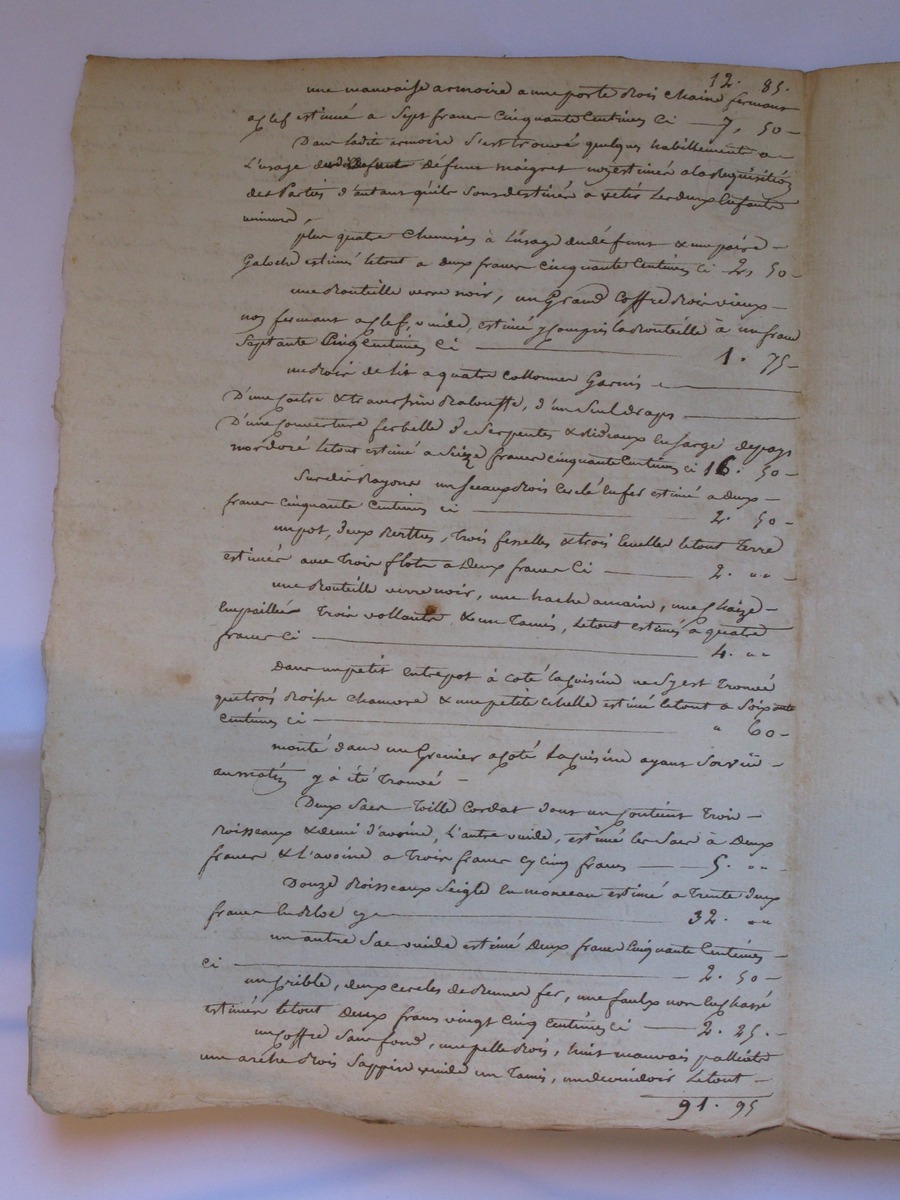 12. 85.
une mauvaise armoire a une porte Bois chaine fermant
a clef estimé a Sept francs Cinquante Centimes Ci — 7, 50 —
Dans ladite armoire s'est trouvé quelques habillements a
L'usage défunt maigres non estimés a la Requisition
des Parties d'autans qu'ils sons destinés a vetir les deux Enfants
mineurs
plus quatre Chemises à L'usage du défunt & une paire —
Galoche estimés le tout a deux francs cinquante Centimes Ci — 2, 50 —
une Bouteille verre noir, un Grand Coffre Bois vieux —
non fermant a Clef, vuide, estimé y compris la Bouteille à un franc
Septante Cinq Centimes Ci — 1. 75 —
un Bois de Lit a quatre Collonnes Garni —
D'une & traversin Balouffe, d'un Seul draps —
D'une Couverture de Serpentes & Rideaux En Sarge de pays
mordoré le tout estimé a Seize francs cinquante Centimes Ci 16. 50 —
Sur des Rayons un Seeaux Bois Cerclé En fer estimé a Deux —
francs Cinquante Centimes Ci — 2. 50 —
un pot, deux trois fesselles & trois le tout Terre
estimés avec Trois a Deux francs Ci — 2. " " —
une Bouteille verre noir, une hache a main, une Chaize —
Empaillée Trois vollants & un Tamis, le tout estimés a quatre
francs Ci — 4. " "
Dans un petit Entrepot à Coté la Cuisine ne S'y est Trouvé
que trois chanvre & une petite échelle estimé le tout a Soixante
Centimes Ci — " 60 —
monté dans un Grenier a Coté la Cuisine ayant Servïï —
au y à été Trouvé —
Deux Sacs Toille Cordat dont un Contient Trois —
Boisseaux & demi d'avoine, L'autre vuide, estimé les Sacs à Deux
francs & L'avoine a Trois francs Cy Cinq francs — 5. " " —
Douze Boisseaux Seigle En monceau estimé a Trente deux
francs En Bloc cy — 32. " "
un autre Sac vuide estimé Deux francs Cinquante Centimes —
Ci — 2. 50 —
un Crible, deux cercles de fer, une faulx non Enchassé
estimés le tout Deux francs vingt Cinq Centimes Ci — 2. 25. —
un Coffre Sans fond, une pelle Bois, huit mauvais
une arche Bois Sappin vuide un Tamis, un devuidoir Le tout —
91. 95